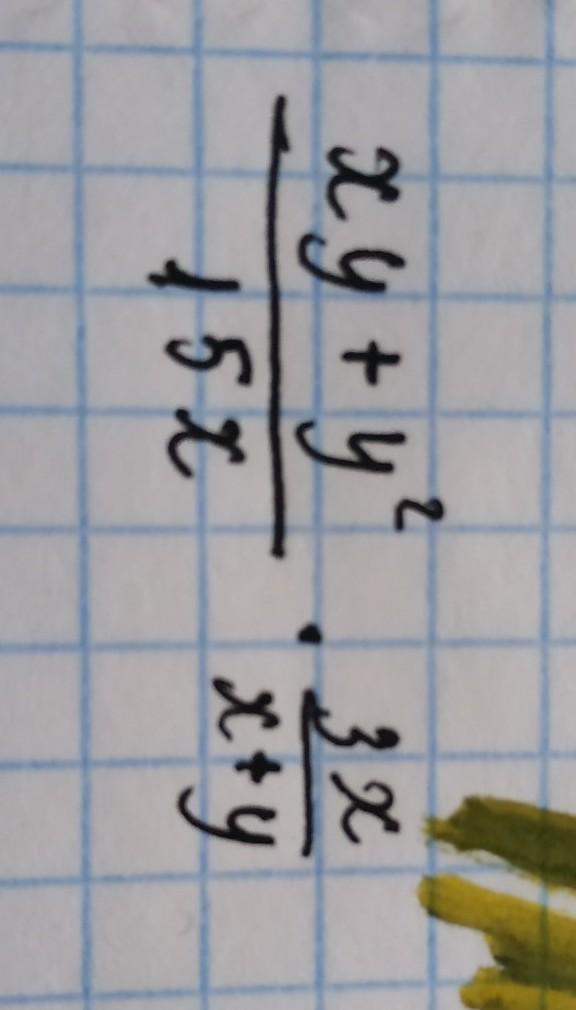 xy + y²
15x
·
3x
x + y